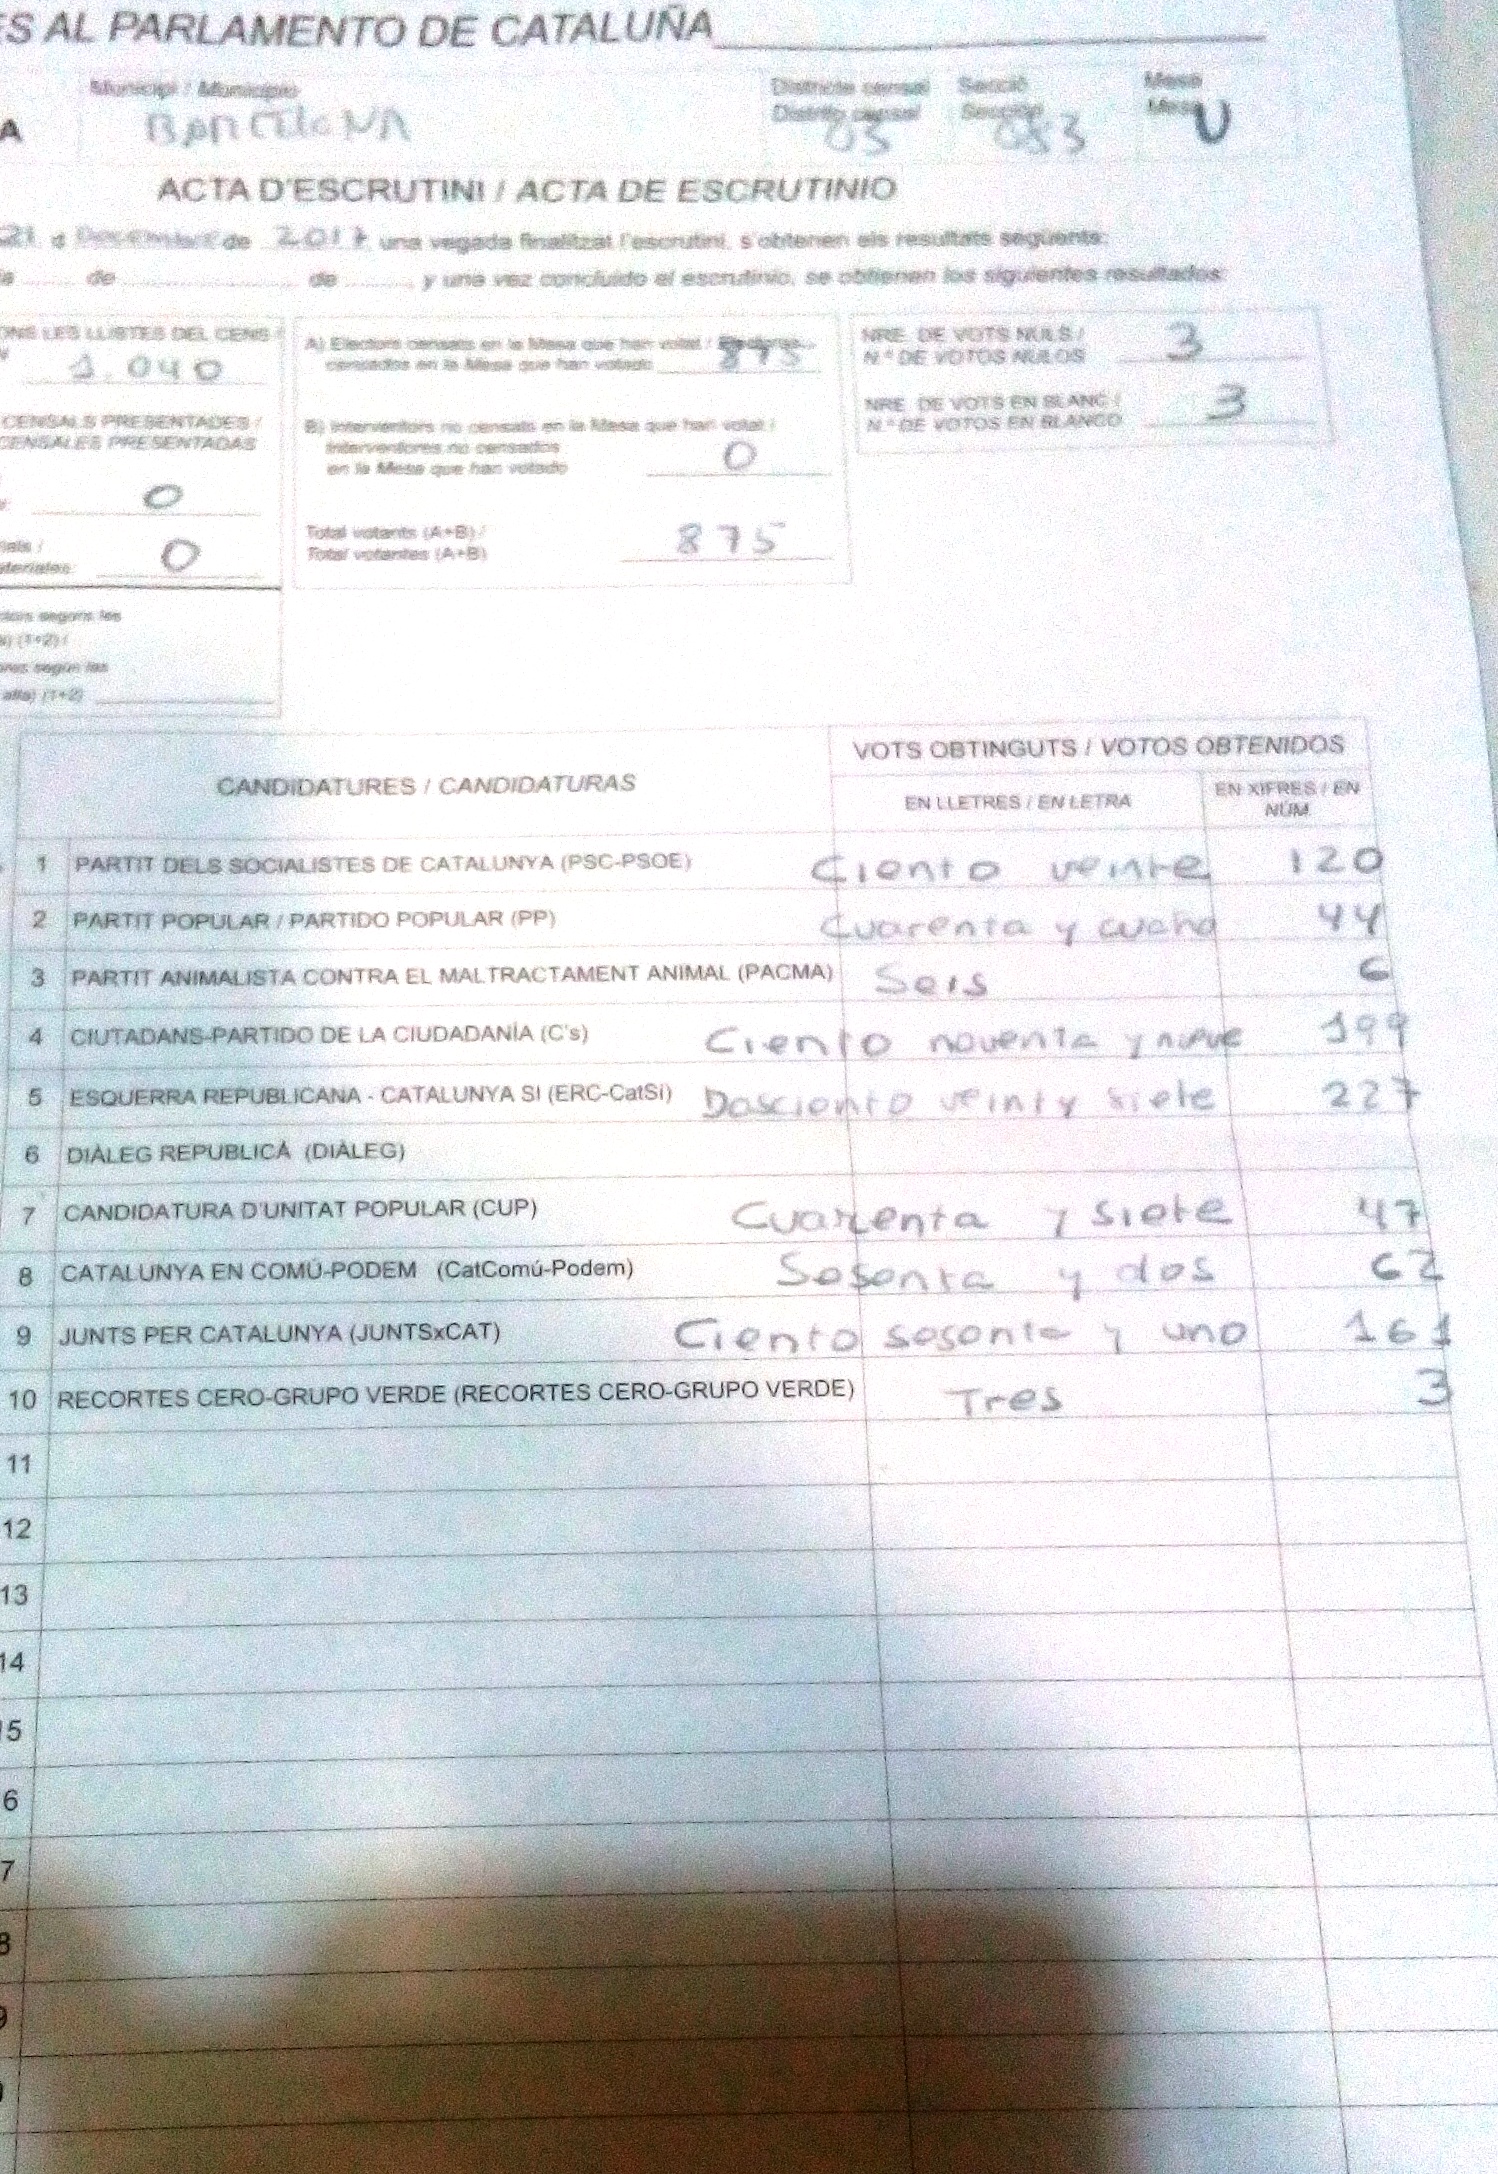 ES AL PARLAMENTO DE CATALUÑA
Municipi / Municipio
Districte censal Secció Mesa
Distrito censal Sección Mesa
A BARCELONA 03 083 U
ACTA D'ESCRUTINI / ACTA DE ESCRUTINIO
21 d Desembre de 2017, una vegada finalitzat l'escrutini, s'obtenen els resultats següents:
de de y una vez concluido el escrutinio, se obtienen los siguientes resultados:
ONS LES LLISTES DEL CENS /
1.040
CENSALS PRESENTADES /
CENSALES PRESENTADAS
0
ials /
ateriales: 0
segons les
(1+2) /
ores según las
alta) (1+2)
A) Electors censats en la Mesa que han votat / Electores
censados en la Mesa que han votado 875
B) Interventors no censats en la Mesa que han votat /
Interventores no censados
en la Mesa que han votado 0
Total votants (A+B) /
Total votantes (A+B) 875
NRE. DE VOTS NULS /
N.º DE VOTOS NULOS 3
NRE. DE VOTS EN BLANC /
N.º DE VOTOS EN BLANCO 3
CANDIDATURES / CANDIDATURAS
VOTS OBTINGUTS / VOTOS OBTENIDOS
EN LLETRES / EN LETRA
EN XIFRES / EN
NÚM.
1 PARTIT DELS SOCIALISTES DE CATALUNYA (PSC-PSOE) Ciento veinte 120
2 PARTIT POPULAR / PARTIDO POPULAR (PP) Cuarenta y cuatro 44
3 PARTIT ANIMALISTA CONTRA EL MALTRACTAMENT ANIMAL (PACMA) Seis 6
4 CIUTADANS-PARTIDO DE LA CIUDADANÍA (C's) Ciento noventa y nueve 199
5 ESQUERRA REPUBLICANA - CATALUNYA SI (ERC-CatSí) Dosciento veinty siete 227
6 DIÀLEG REPUBLICÀ (DIÀLEG)
7 CANDIDATURA D'UNITAT POPULAR (CUP) Cuarenta y siete 47
8 CATALUNYA EN COMÚ-PODEM (CatComú-Podem) Sesenta y dos 62
9 JUNTS PER CATALUNYA (JUNTSxCAT) Ciento sesenta y uno 161
10 RECORTES CERO-GRUPO VERDE (RECORTES CERO-GRUPO VERDE) Tres 3
11
12
13
14
15
6
7
8
9